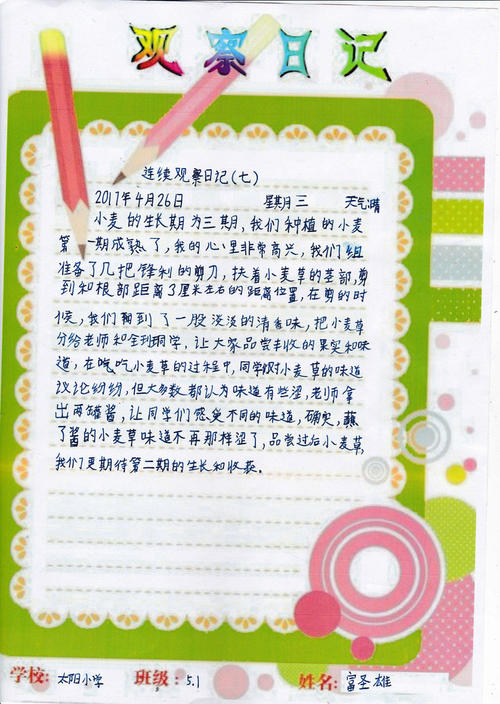 观察日记
连续观察日记(七)
2017年4月26日 星期三 天气:晴
小麦的生长期为三期,我们种植的小麦
第一期成熟了,我的心里非常高兴,我们组
准备了几把锋利的剪刀,扶着小麦草的茎部,剪
到和根部距离3厘米左右的距离位置,在剪的时
候,我们闻到了一股淡淡的清香味,把小麦草
分给老师和全班同学,让大家品尝丰收的果实和味
道,在吃吃小麦草的过程中,同学对小麦草的味道
议论纷纷,但大多数都认为味道有些涩,老师拿
出两罐酱,让同学们感受不同的味道,确实,蘸
了酱的小麦草味道不再那样涩了,品尝过后小麦草,
我们更期待第二期的生长和收获.
学校: 太阳小学 班级: 5.1 姓名: 富圣雄